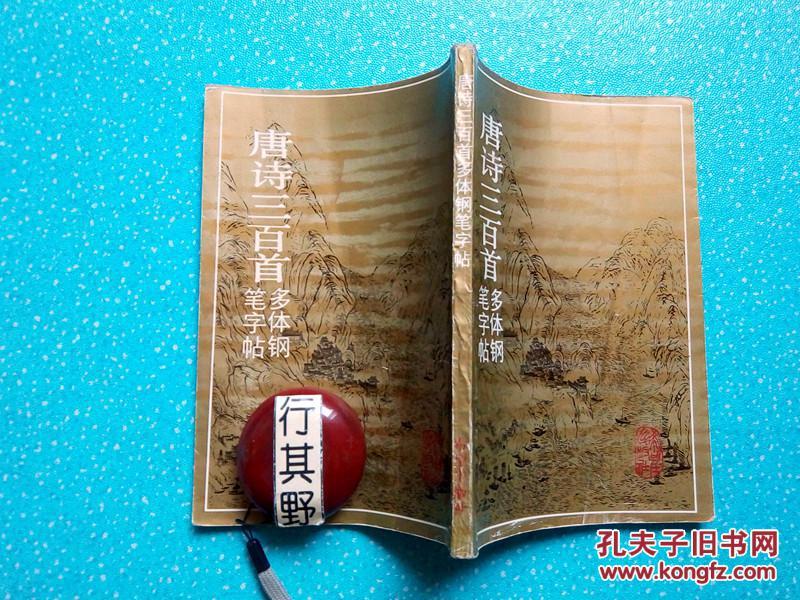 唐诗三百首
多体钢
笔字帖
唐诗三百首多体钢笔字帖
唐诗三百首
多体钢
笔字帖
行其野
孔夫子旧书网
www.kongfz.com